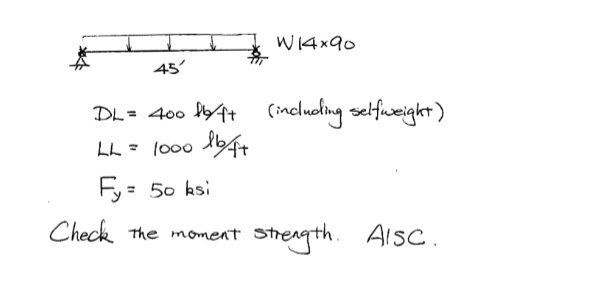 W14x90
45'
DL = 400 lb/ft (including selfweight)
LL = 1000 lb/ft
Fy = 50 ksi
Check the moment strength. AISC.